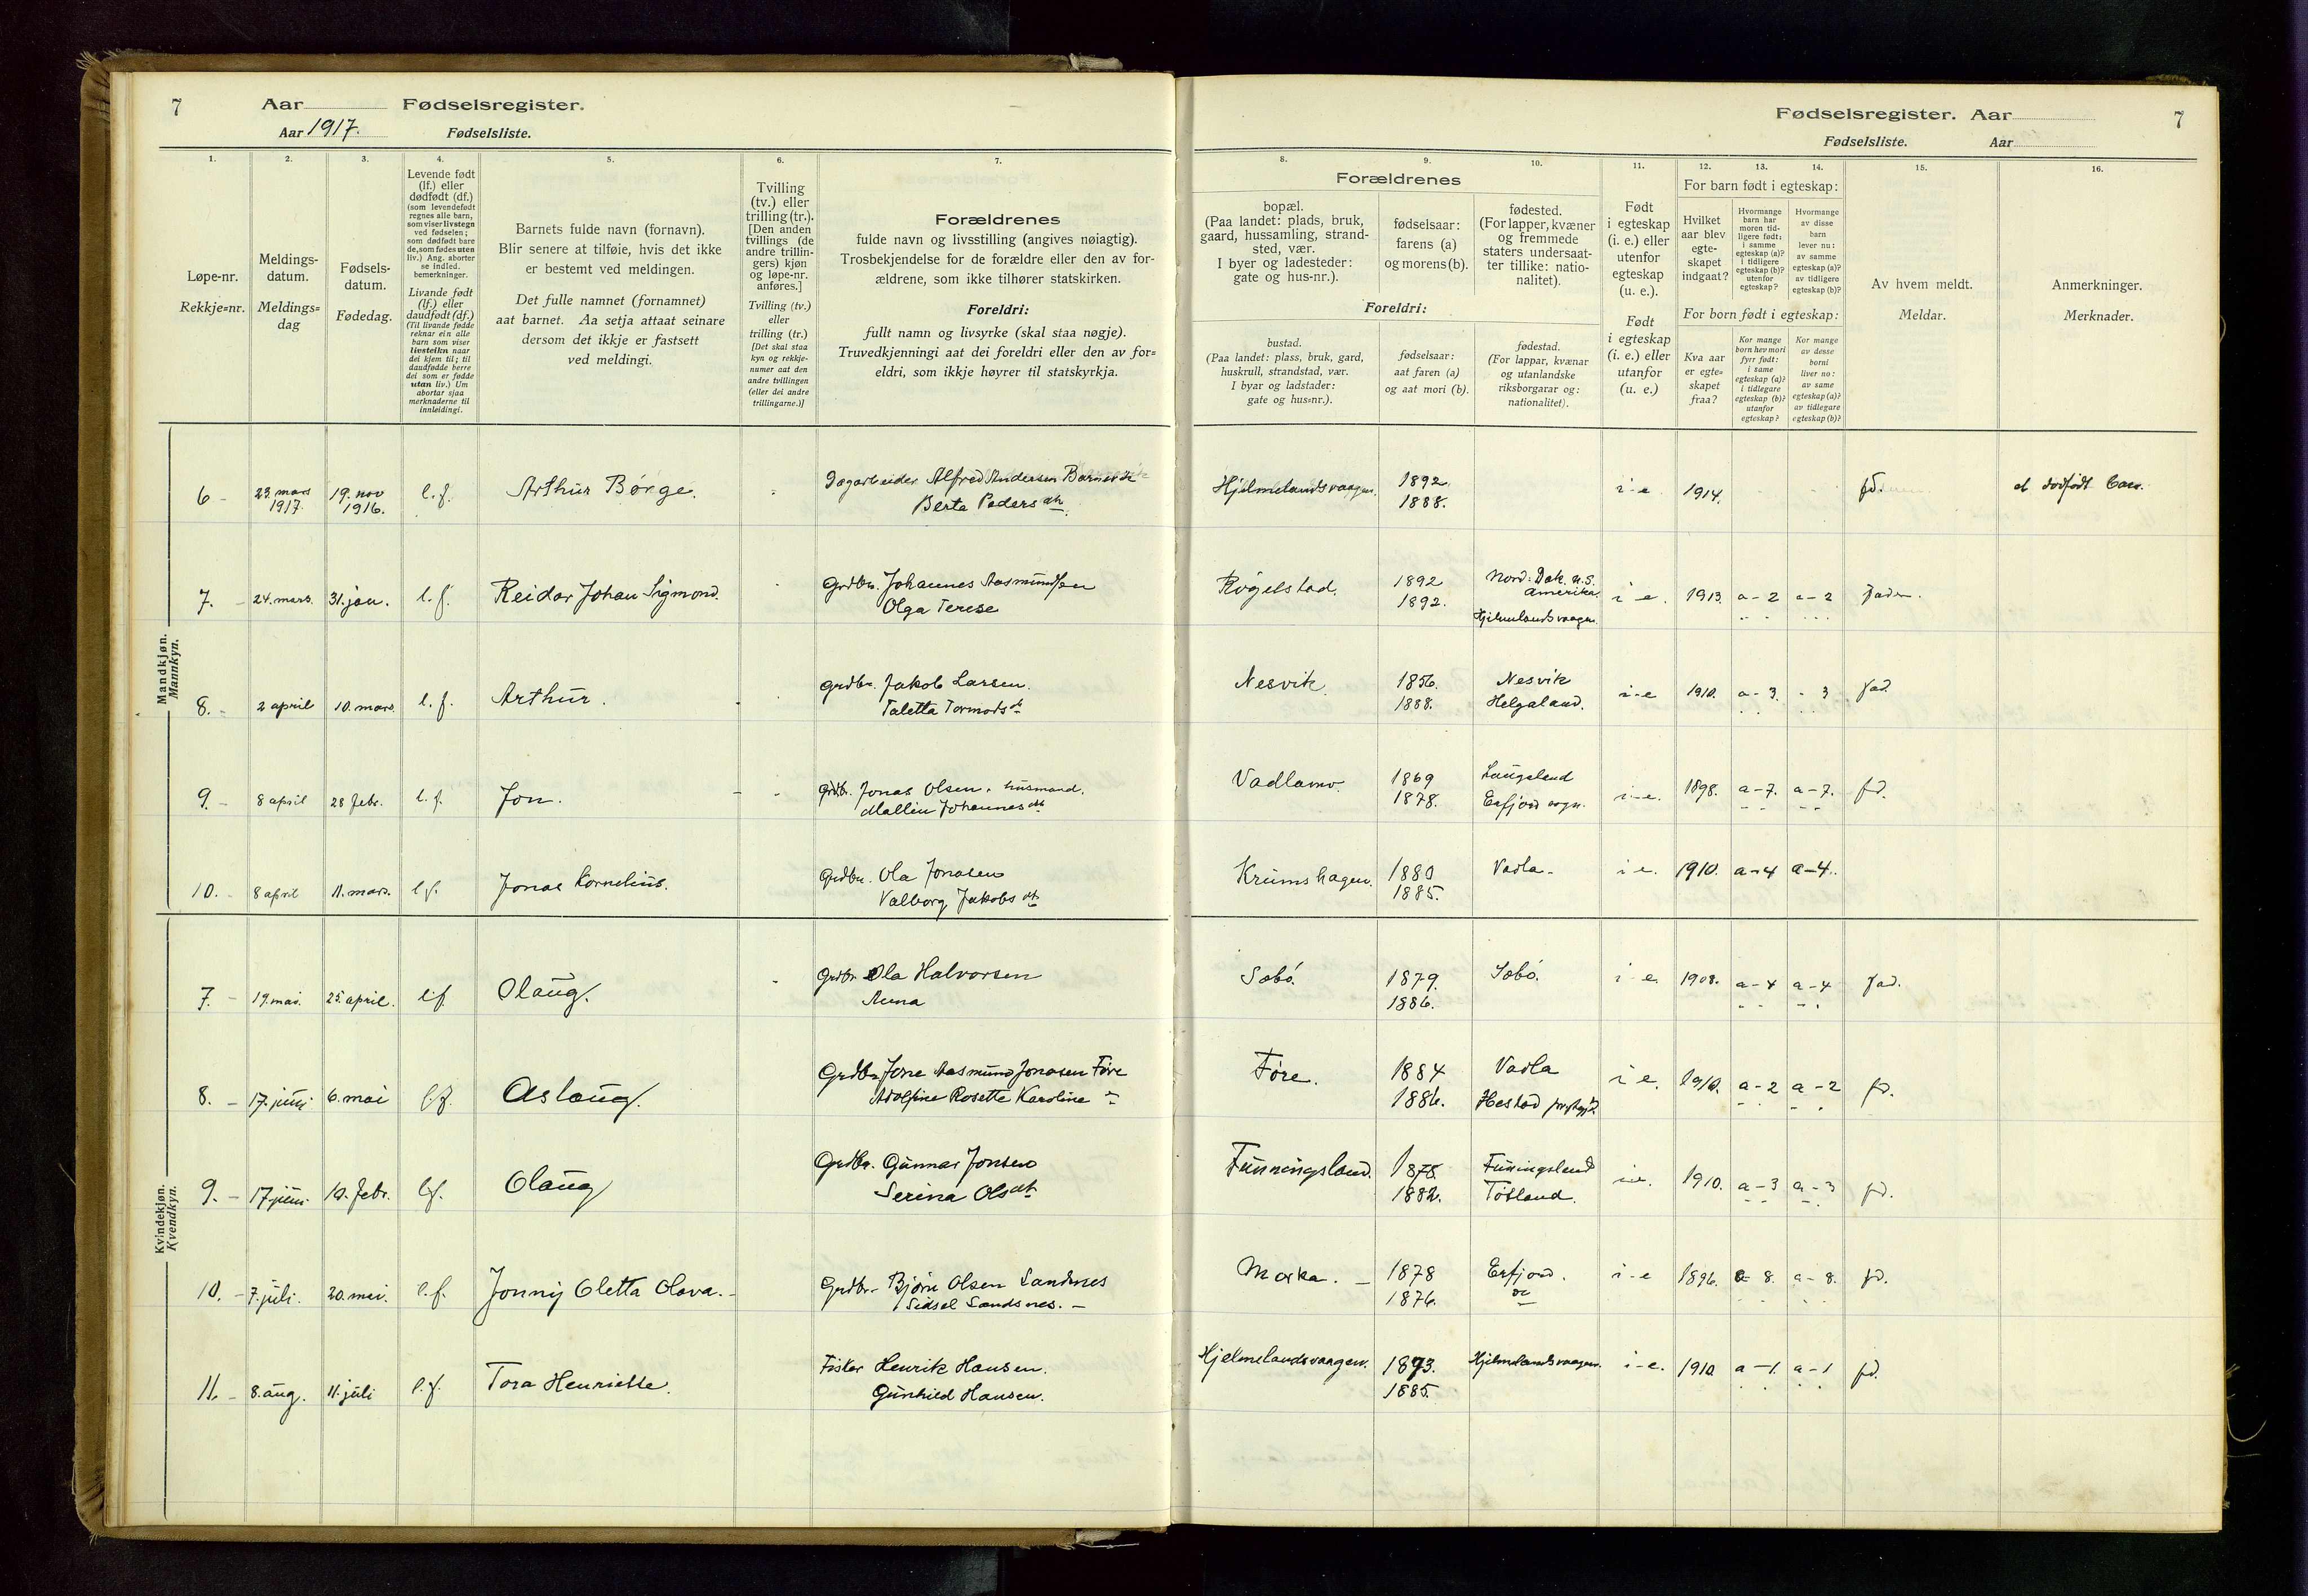 7 Aar Fødselsregister.
Aar 1917. Fødselsliste.
Fødselsregister. Aar 7
Fødselsliste. Aar
1. 2. 3. 4. 5. 6. 7. 8. 9. 10. 11. 12. 13. 14. 15. 16.
Løpe-nr.
Rekkje=nr.
Meldings-
datum.
Meldings=
dag
Fødsels-
datum.
Fødedag.
Levende født
(lf.) eller
dødfødt (df.)
(som levendefødt
regnes alle barn,
som viser livstegn
ved fødselen;
som dødfødt bare
de, som fødes uten
liv.) Ang. aborter
se indled.
bemerkninger.
Livande født
(lf.) eller
daudfødt (df.)
(Til livande fødde
reknar ein alle
barn som viser
livsteikn naar
dei kjem til; til
daudfødde berre
dei som er fødde
utan liv.) Um
abortar sjaa
merknaderne til
innleidingi.
Barnets fulde navn (fornavn).
Blir senere at tilføie, hvis det ikke
er bestemt ved meldingen.
Det fulle namnet (fornamnet)
aat barnet. Aa setja attaat seinare
dersom det ikkje er fastsett
ved meldingi.
Tvilling
(tv.) eller
trilling (tr.).
[Den anden
tvillings (de
andre trillin-
gers) kjøn
og løpe-nr.
anføres.]
Tvilling (tv.)
eller
trilling (tr.)
[Det skal staa
kyn og rekkje-
numer aat den
andre tvillingen
(eller dei andre
trillingarne.)]
Forældrenes
fulde navn og livsstilling (angives nøiagtig).
Trosbekjendelse for de forældre eller den av for-
ældrene, som ikke tilhører statskirken.
Foreldri:
fullt namn og livsyrke (skal staa nøgje).
Truvedkjenningi aat dei foreldri eller den av for=
eldri, som ikkje høyrer til statskyrkja.
Forældrenes
bopæl.
(Paa landet: plads, bruk,
gaard, hussamling, strand-
sted, vær.
I byer og ladesteder:
gate og hus-nr.).
fødselsaar:
farens (a)
og morens (b).
fødested.
(For lapper, kvæner
og fremmede
staters undersaat-
ter tillike: natio-
nalitet).
Foreldri:
bustad.
(Paa landet: plass, bruk, gard,
huskrull, strandstad, vær.
I byar og ladstader:
gate og hus=nr.).
fødselsaar:
aat faren (a)
og aat mori (b).
fødestad.
(For lappar, kvænar
og utanlandske
riksborgarar og:
nationalitet).
Født
i egteskap
(i. e.) eller
utenfor
egteskap
(u. e.).
Født
i egteskap
(i. e.) eller
utanfor
egteskap
(u. e.)
For barn født i egteskap:
Hvilket
aar blev
egte-
skapet
indgaat?
Hvormange
barn har
moren tid-
ligere født:
i samme
egteskap (a)?
i tidligere
egteskap (b)?
utenfor
egteskap?
Hvormange
av disse
barn
lever nu:
av samme
egteskap (a)?
av tidligere
egteskap (b)?
For born født i egteskap:
Kva aar
er egte=
skapet
fraa?
Kor mange
born hev mori
fyrr født:
i same
egteskap (a)?
i tidlegare
egteskap (b)?
utanfor
egteskap?
Kor mange
av desse
borni
liver no:
av same
egteskap (a)?
av tidlegare
egteskap (b)?
Av hvem meldt.
Meldar.
Anmerkninger.
Merknader.
Mandkjøn.
Mannkyn.
6 - 23 mars 1917. 19. nov 1916. l. f. Arthur Børge. Dagarbeider Alfred Andersen
Berta Pedersdtr. Hjelmelandsvaagen. 1892. 1888. i-e 1914. fd. et dødfødt barn.
7. - 24. mars. 31. jan. l. f. Reidar Johan Sigmond. Grdbr. Johannes Aasmundsen
Olga Terese Røgelstad. 1892 1892. Nord. Dak. u.s. amerika. Hjelmelandsvaagen. i - e. 1913. a-2 a-2 fader.
8. - 2 april 10. mars. l. f. Arthur. grdbr. Jakob Larsen.
Taletta Tormodsdt Nesvik. 1856. 1888. Nesvik Helgaland. i-e 1910. a-3. - 3 fad.
9. - 8 april 28 febr. l. f. Jon. grdbr. Jonas Olsen, husmand.
Mallin Johannesdtr Vadlamo. 1869 1878. Laugeland Erfjord sogn. i-e. 1898. a-7. a-7. fd.
10. - 8 april 11. mars. lf. Jonas Kornelius. Grdbr. Ola Jonasen
Valborg Jakobsdtr Krumshagen. 1880 1885. Vadla- i e. 1910. a-4 a-4.
Kvindekjøn.
Kvendkyn.
7. - 19. mai. 25. april. lf. Olaug. Grdbr Ola Halvorsen
Anna Sæbø. 1879. 1886. Sæbø. i-e. 1908. a-4 a-4 fad.
8. - 17. juni 6. mai lf. Aslaug. Grdbr. Jone Aasmund Jonasen Føre
Adolfine Rosette Karoline Føre. 1884 1886. Vadla Hestad i e. 1910. a-2 a-2 fd.
9. - 17 juni. 10. febr. lf. Olaug Grdbr. Gunnar Jonsen
Serina Olsdtr Funningsland. 1878. 1882. Funingsland Tøtland. i-e. 1910. a-3 a-3 fd.
10. - 7. juli. 20. mai. l. f. Jonny Oletta Olava. Grdbr. Bjørn Olsen Sandsnes
Sidsel Sandsnes. - Moska. - 1878 1876. Erfjord. do i-e 1896. a-8. a-8. fd.
11. - 8. aug. 11. juli l. f. Tora Henriette. Fisker Henrik Hansen.
Gunhild Hansen. Hjelmelandsvaagen. 1873. 1885. Hjelmelandsvaagen. i-e. 1910. a-1. a-1 fd.